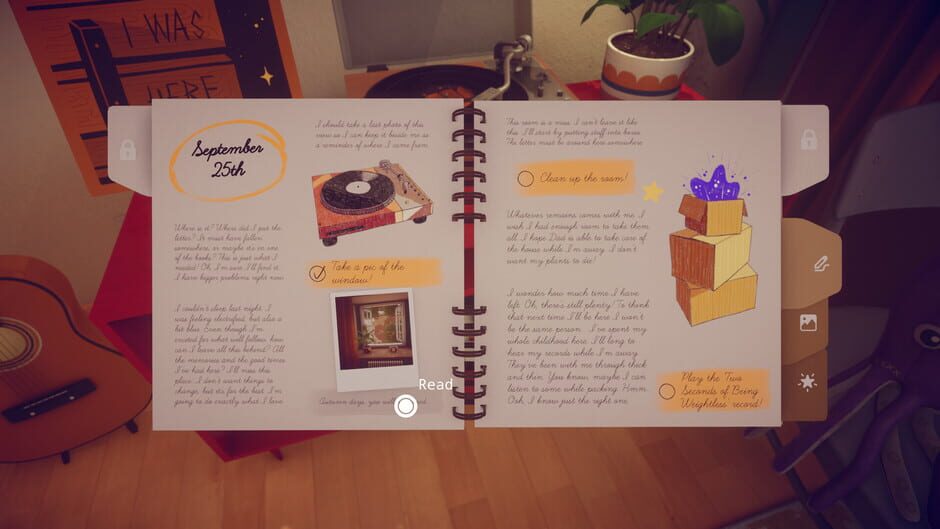 I WAS
HERE
September
25th
Where is it? Where did I put the
letter? It must have fallen
somewhere, or maybe it's in one
of the books? This is just what I
needed! Oh, I'm sure I'll find it.
I have bigger problems right now.
I couldn't sleep last night. I
was feeling electrified, but also a
bit blue. Even though I'm
excited for what will follow, how
can I leave all this behind? All
the memories and the good times
I've had here? I'll miss this
place. I don't want things to
change, but for the best. I'm
going to do exactly what I love
I should take a last photo of this
view so I can keep it beside me as
a reminder of where I came from.
Take a pic of the
window!
Autumn days, you
Read
This room is a mess. I can't leave it like
this. I'll start by putting stuff into boxes.
The letter must be around here somewhere
Clean up the room!
Whatever remains comes with me. I
wish I had enough room to take them
all. I hope Dad is able to take care of
the house while I'm away. I don't
want my plants to die!
I wonder how much time I have
left. Oh, there's still plenty! To think
that next time I'll be here I won't
be the same person... I've spent my
whole childhood here. I'll long to
hear my records while I'm away.
They've been with me through thick
and thin. You know, maybe I can
listen to some while packing. Hmm...
Ooh, I know just the right one.
Play the Two
Seconds of Being
Weightless record!